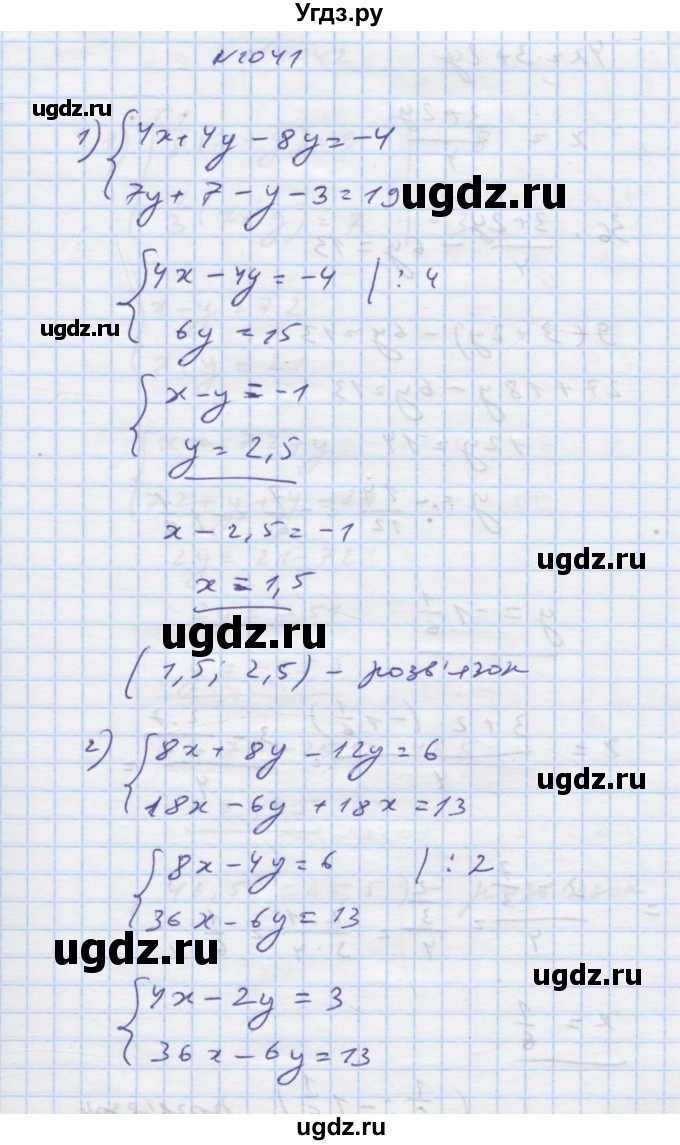 Угдз.ру
№1041
ugdz.ru
1) { 4x + 4y - 8y = -4
7y + 7 - y - 3 = 19
ugdz.ru
{ 4x - 4y = -4 | : 4
6y = 15
ugdz.ru
{ x - y = -1
y = 2,5
x - 2,5 = -1
ugdz.ru
x = 1,5
ugdz.ru
(1,5; 2,5) - розв'язок
2) { 8x + 8y - 12y = 6
ugdz.ru
18x - 6y + 18x = 13
{ 8x - 4y = 6 | : 2
36x - 6y = 13
ugdz.ru
ugdz.ru
{ 4x - 2y = 3
36x - 6y = 13
ugdz.ru